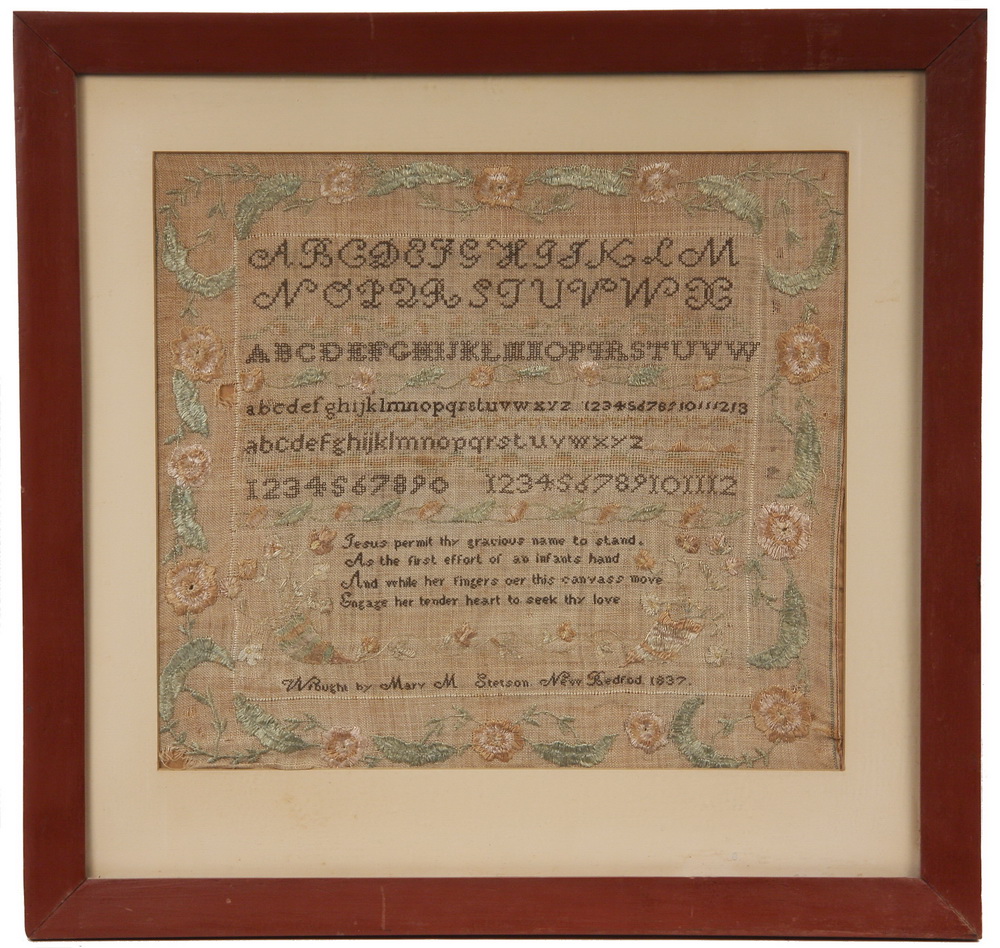 A B C D E F G H I J K L M
N O P Q R S T U V W X
A B C D E F G H I J K L M N O P Q R S T U V W
a b c d e f g h i j k l m n o p q r s t u v w x y z 1 2 3 4 5 6 7 8 9 10 11 12 13
a b c d e f g h i j k l m n o p q r s t u v w x y z
1 2 3 4 5 6 7 8 9 0 1 2 3 4 5 6 7 8 9 10 11 12
Jesus permit thy gracious name to stand.
As the first effort of an infants hand
And while her fingers oer this canvass move
Engage her tender heart to seek thy love
Wrought by Mary M Stetson New Bedfod 1837.